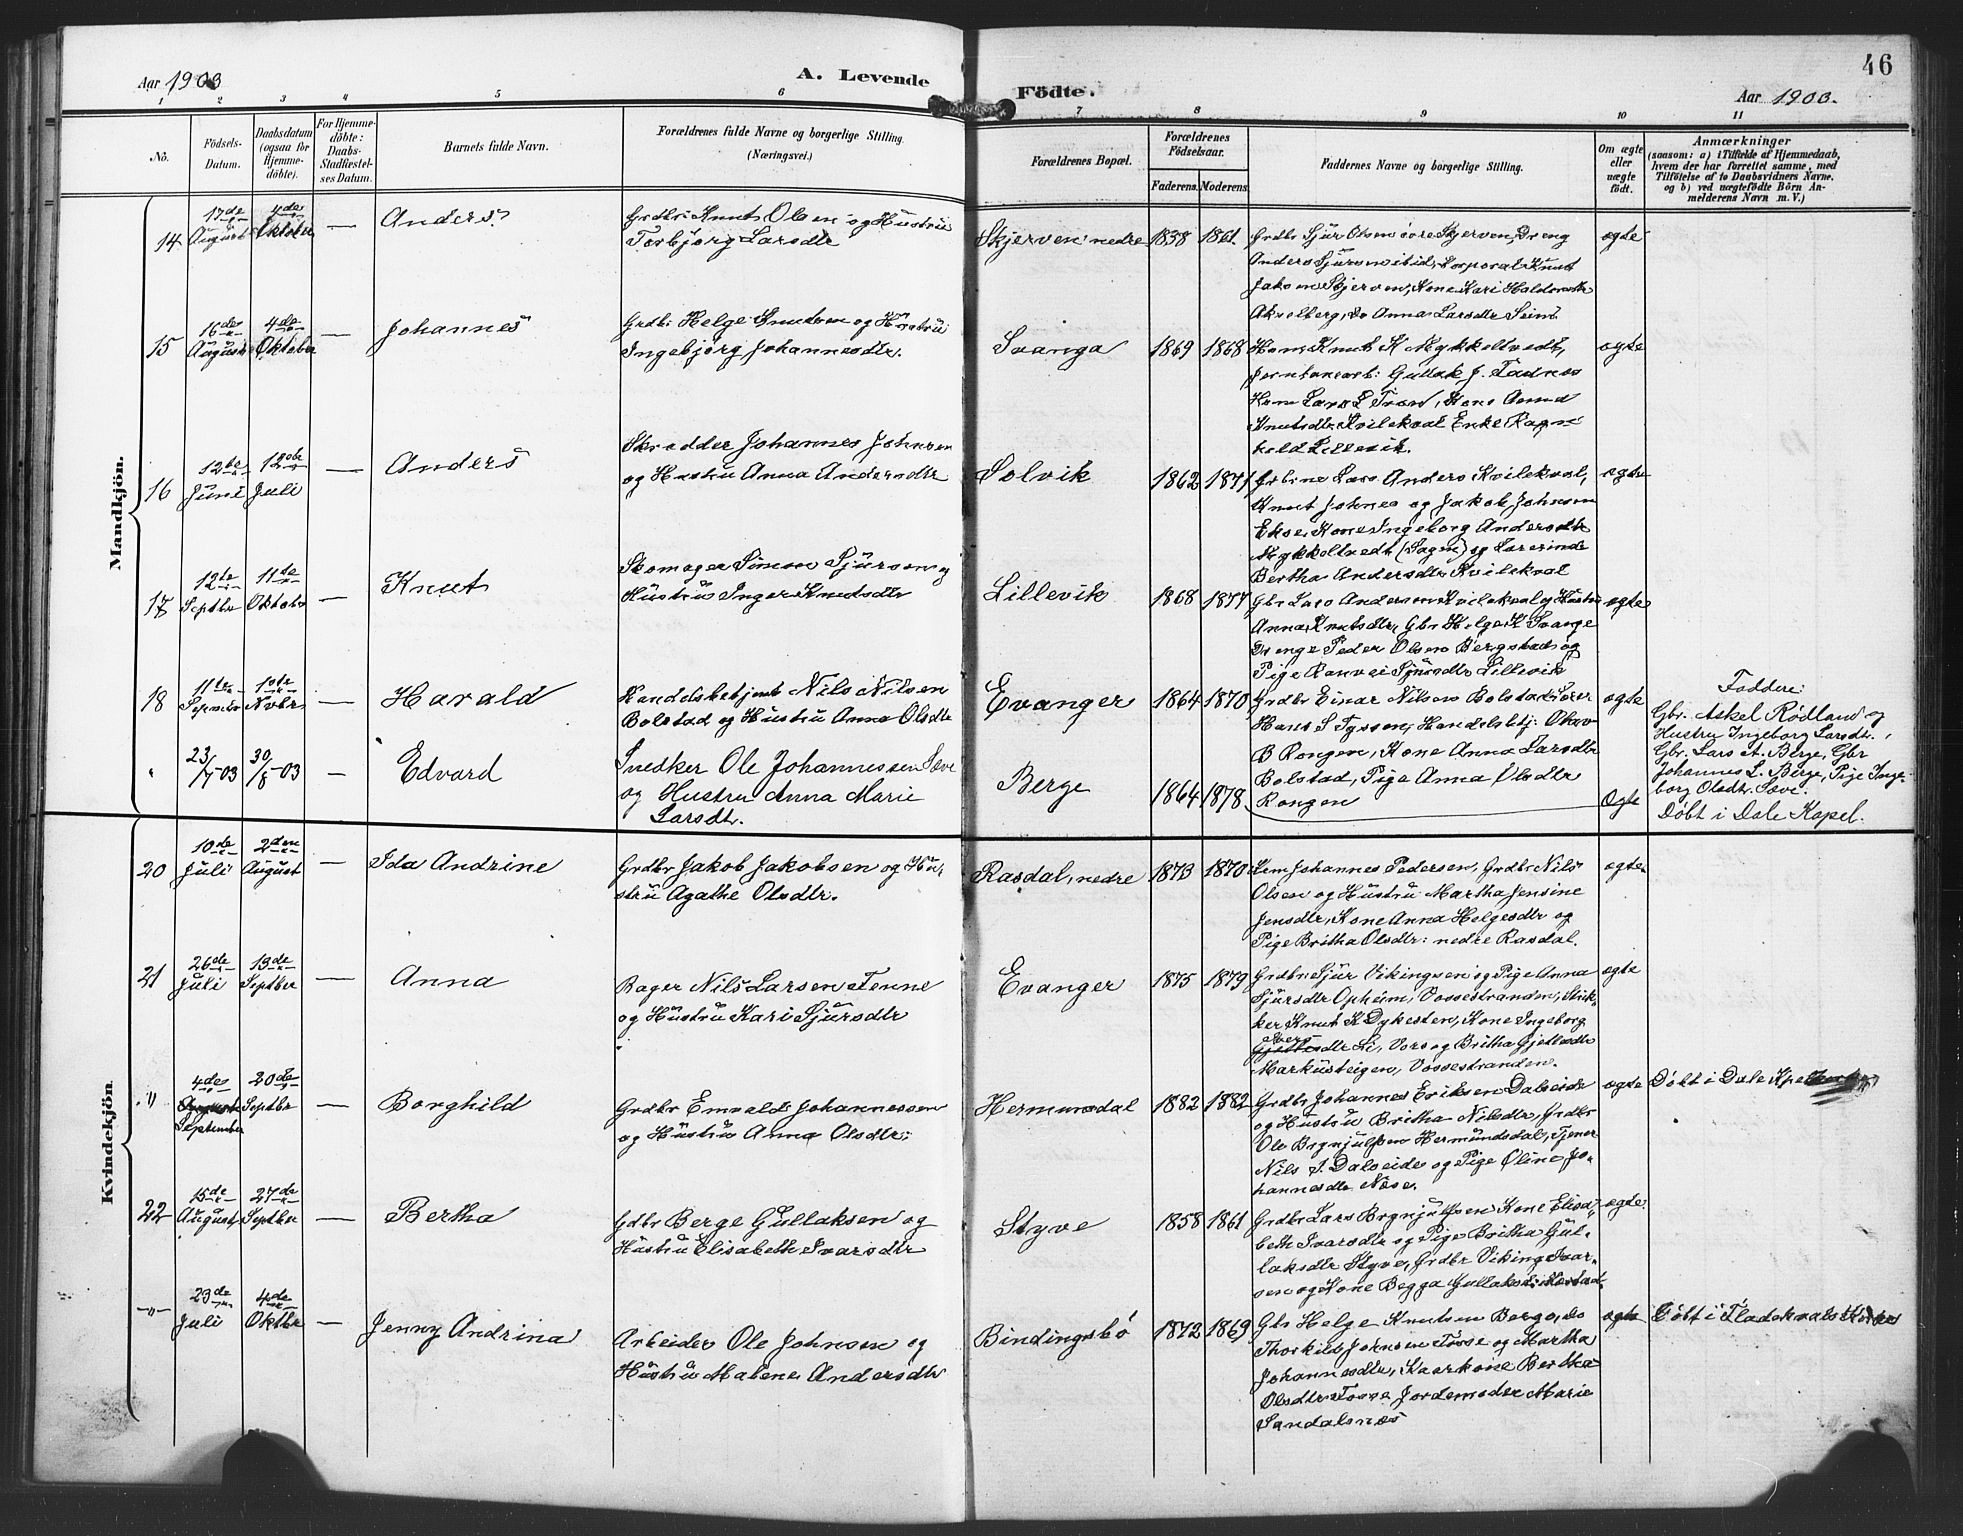 Aar 1903
A. Levende
Födte.
Aar 1903.
46
1 2 3 4 5 6 7 8 9 10 11
No.
Födsels-
Datum.
Daabsdatum
(ogsaa for
Hjemme-
döbte).
For Hjemme-
döbte:
Daabs-
Stadfæstel-
ses Datum.
Barnets fulde Navn.
Forældrenes fulde Navne og borgerlige Stilling.
(Næringsvei.)
Forældrenes Bopæl.
Forældrenes
Födselsaar.
Faderens.
Moderens.
Faddernes Navne og borgerlige Stilling.
Om ægte
eller
uægte
födt.
Anmærkninger
(saasom: a) i Tilfælde af Hjemmedaab,
hvem der har forrettet samme, med
Tilföielse af to Daabsvidners Navne,
og b) ved uægtefödte Börn An-
melderens Navn m. V.)
Mandkjön.
14
17de
August
4de
Oktober
—
Anders
Grdbr: Knut Olsen og Hustru
Torbjørg Larsdtr
Skjerven nedre
1838
1861.
Grdbr Sjur Olsen øvre Skjerven, Dreng
Anders Sjursen ibid, Korporal Knut
Jaksen Skjerven, Kone Kari Haldorsdtr
Akselberg, Do Anna Larsdtr Seim
ægte
15
16de
August
4de
Oktober
—
Johannes
Grdb: Helge Knutsen og Hustru
Ingebjørg Johannesdtr.
Svanga
1869
1868
Ham. Knut K Mykkeltvedt,
Jernbanearb: Gullak J. Fadnes
Ham Lars L Træn, Kone Anna
Knutsdtr Kvilekval Enke Ragn
hild Lillevik.
ægte
16
12te
Juni
12te
Juli
—
Anders
Skrædder Johannes Johnsen
og Hustru Anna Andersdtr
Solvik
1862
1871
Grbrne Lars Anders Kvilekval,
Knut Johnes og Jakob Johnsen
Ekse, Kone Ingeborg Andersdtr
Mykkeltvedt (Sagen) og Lærerinde
Bertha Andersdtr Kvilekval
ægte
17
12te
Septbr
11te
Oktober
—
Knut
Skomager Simon Sjurson og
Hustru Inger Knutsdtr
Lillevik
1868
1877
Gbr Lars Andersen Kvilekval og Hustru
Anna Knutsdtr, Gbr Helge K Svange
Drenge Peder Olsen Bergstad og
Pige Ranvei Sjursdtr Lillevik
ægte
18
11te
September
1ste
Nvbr
—
Harald
Handelsbetjent Nils Nilsen
Bolstad og Hustru Anna Olsdtr
Evanger
1864
1870
Grdbr Einar Nilsen Bolstad, Lærer
Hans S Tyssen, Handelsbtj: Olav
B Rongen, Kone Anna Larsdtr
Bolstad, Pige Anna Olsdtr
Rongen
ægte
23/7-03
30/8-03
—
Edvard
Snedker Ole Johannessen Sæve
og Hustru Anna Marie
Larsdtr.
Berge
1864
1878
Ægte
Faddere:
Gbr. Askel Rødland og
Hustru Ingeborg Larsdtr.,
Gbr. Lars A. Berge, Gbr
Johannes L. Berge, Pige Inge-
borg Olsdtr. Sæve.
Døbt i Dale Kapel.
Kvindekjön.
20
10de
Juli
2den
August
—
Ida Andrine
Grdbr Jakob Jakobsen og Hu-
stru Agathe Olsdtr.
Rasdal, nedre
1873
1870
Hm Johannes Pedersen, Grdbr Nils
Olsen og Hustru Martha Jensine
Jensdtr, Kone Anna Helgesdtr og
Pige Britha Olsdtr: nedre Rasdal.
ægte
21
26de
Juli
13de
Septber
—
Anna
Bager Nils Larsen Fenne
og Hustru Kari Sjursdtr
Evanger
1875
1879
Grdbr: Sjur Vikingsen og Pige Anna
Sjursdtr Opheim, Vossestranden, Strik-
ker Knut K Dykesten, Kone Ingeborg
Gjetlesdtr Li, Vors og Britha Gjetlesdtr
Markusteigen, Vossestranden.
ægte
"
4de
August
September
20de
Septbr
—
Borghild
Grdbr Emvald Johannessen
og Hustru Anna Olsdtr:
Hermunsdal
1882
1882
Grdbr Johannes Eriksen Dalseide
og Hustru Britha Nilsdtr, Grdbr
Ole Brynjulfsen Hermundsdal, Tjener
Nils J. Dalseide og Pige Oline Jo-
hannesdtr Næse.
ægte
Døbt i Dale Kpel
22
15de
August
27de
Septbr
—
Bertha
Gdbr Berge Gullaksen og
Hustru Elisabeth Ivarsdtr
Styve
1858
1861
Grdbr Lars Brynjulfsen Kone Elisa-
beth Ivarsdtr og Pige Britha Gul-
laksdtr Styve, Grdbr Viking Ivar-
sen og Kone Begga Gullaksdtr
ægte
—"—
23de
Juli
4de
Oktbr
—
Jenny Andrina
Arbeider Ole Johnsen og
Hustru Malene Andersdtr
Bindingsbø
1872
1869
Gbr Helge Knutsen Berge, Do
Thorkild Johnsen Fosse og Martha
Johannesdtr, Kaarkone Bertha
Olsdtr Fosse, Jordemoder Marie
Sandalsnæs
ægte
Døbt i Fladekvals Kirke